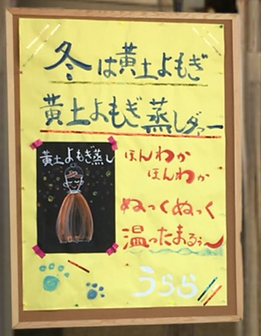 冬は黄土よもぎ
黄土よもぎ蒸しダァー
黄土よもぎ蒸し
ほんわか
ほんわか
ぬっくぬっく
温ったまるぅ～
うらら